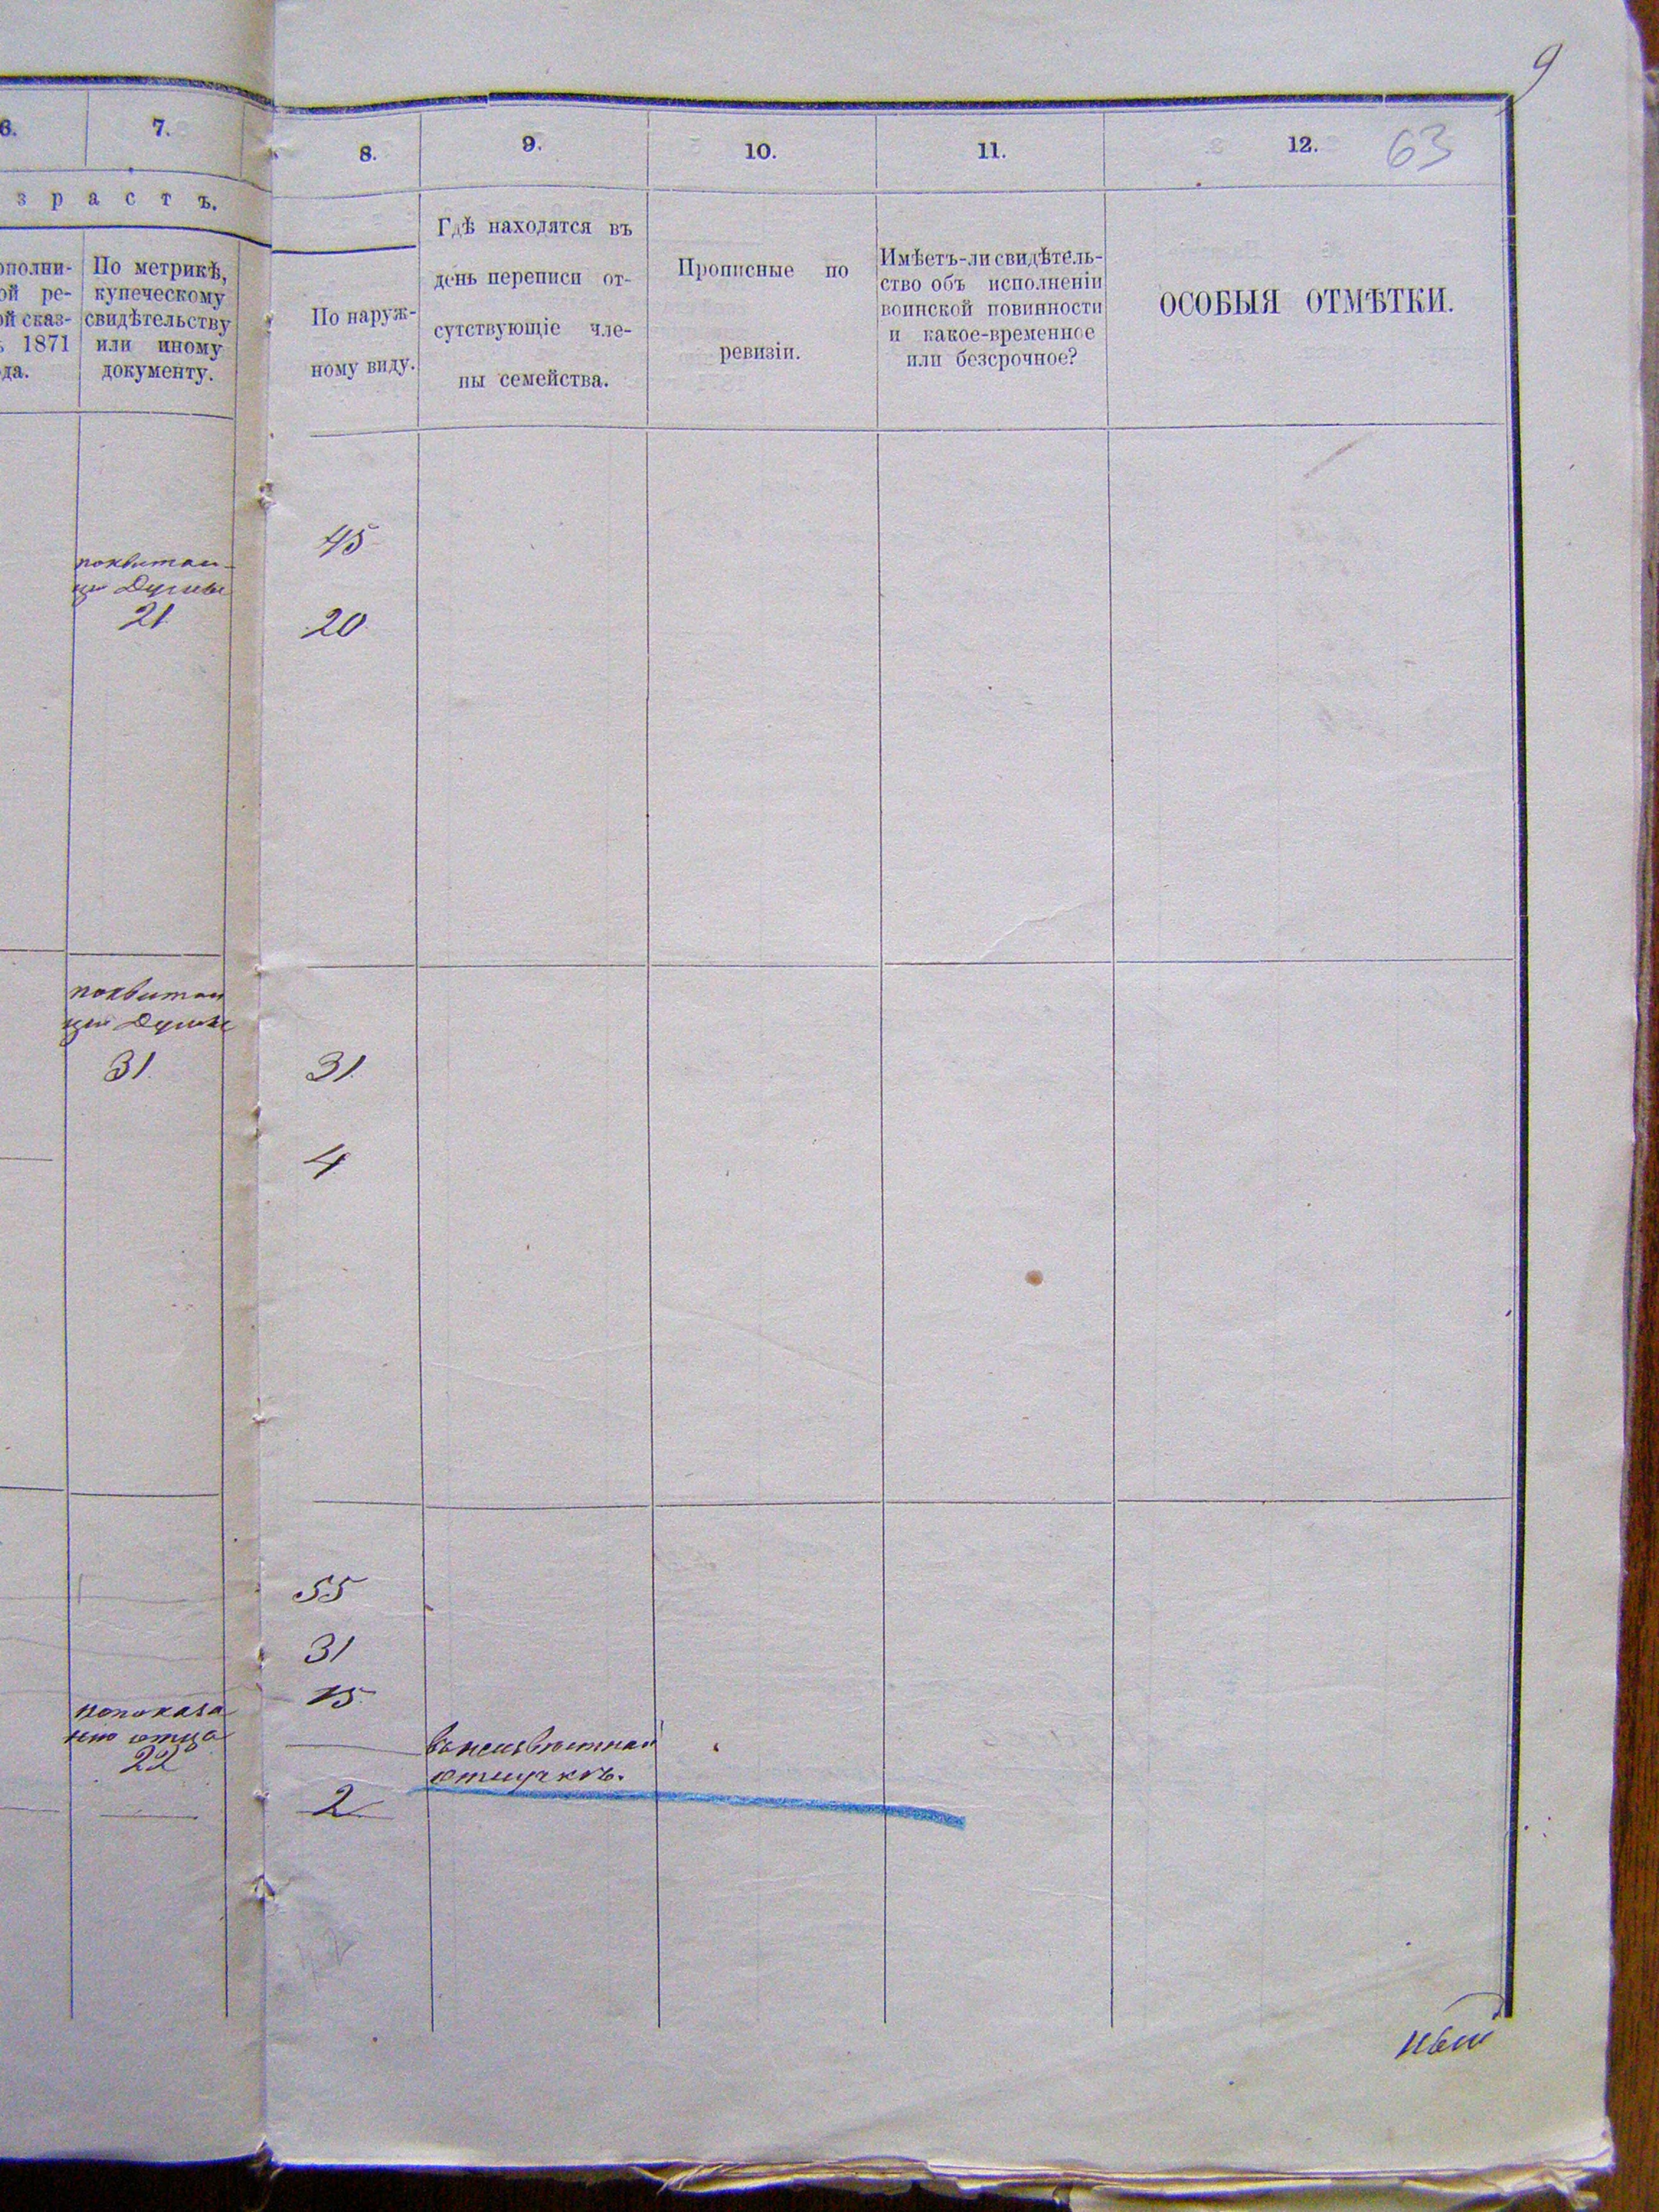 9
63
6.
7.
8.
9.
10.
11.
12.
зрастъ.
ополни-
ой ре-
ой сказ-
ъ 1871
да.
По метрикѣ,
купеческому
свидѣтельству
или иному
документу.
По наруж-
ному виду.
Гдѣ находятся въ
день переписи от-
сутствующіе чле-
ны семейства.
Прописные по
ревизіи.
Имѣетъ-ли свидѣтель-
ство объ исполненіи
воинской повинности
и какое-временное
или безсрочное?
ОСОБЫЯ ОТМѢТКИ.
45
поквитан-
ціи Думы
21
20
поквитан
ціи Думы
31
31
4
55
31
15
попоказа
нію отца
22
въ неизвѣстной
отлучкѣ.
2